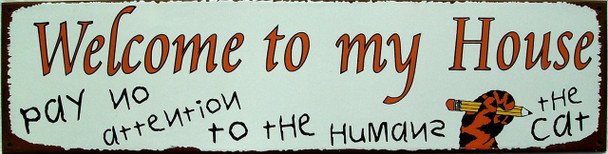 Welcome to my House
pay no attention to the humans
the cat